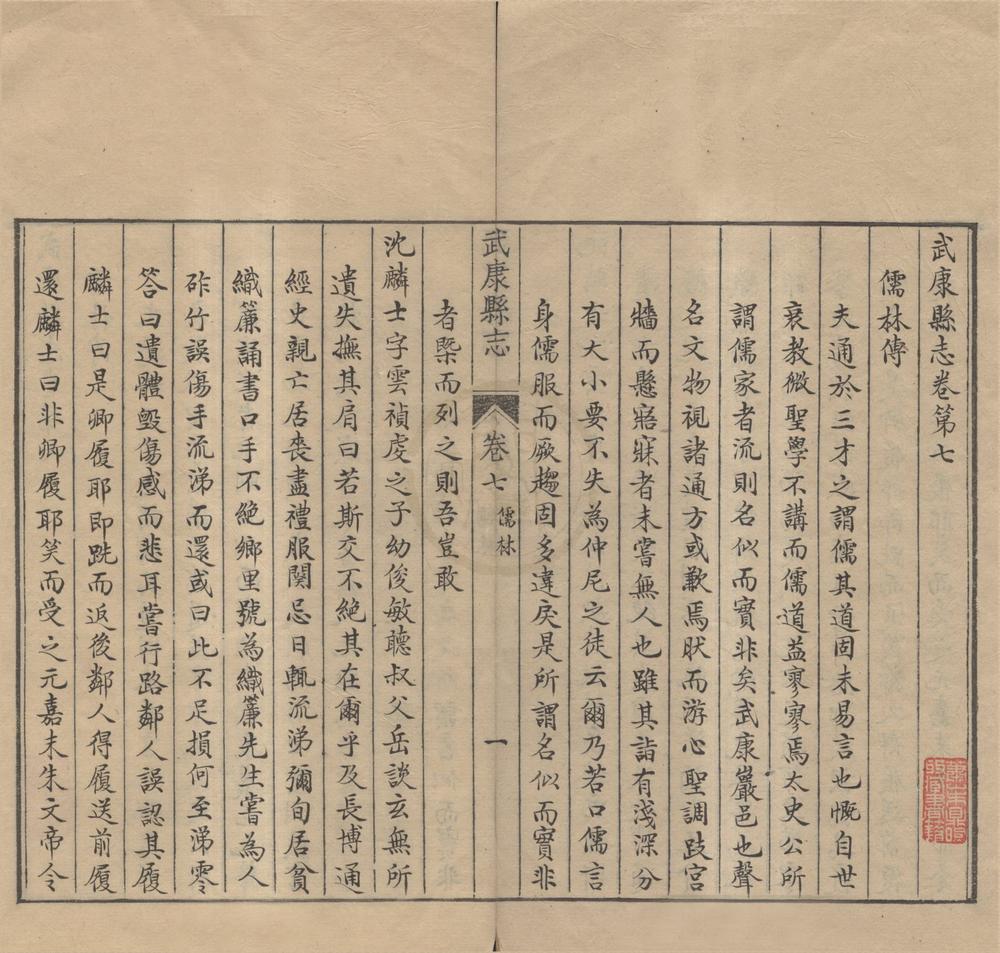 武康縣志卷第七
儒林傳
夫通於三才之謂儒其道固未易言也慨自世
衰教微聖學不講而儒道益寥寥焉太史公所
謂儒家者流則名似而實非矣武康巖邑也聲
名文物視諸通方或歉焉肰而游心聖調跂宮
牆而懸寤寐者未嘗無人也雖其詣有淺深分
有大小要不失為仲尼之徒云爾乃若口儒言
身儒服而厥趨固多違戾是所謂名似而實非
者槩而列之則吾豈敢
武康縣志 卷七 儒林 一
沈麟士字雲禎虔之子幼俊敏聽叔父岳談玄無所
遺失撫其肩曰若斯交不絶其在爾乎及長博通
經史親亡居喪盡禮服闋忌日輒流涕彌旬居貧
織簾誦書口手不絶鄉里號為織簾先生嘗為人
砟竹誤傷手流涕而還或曰此不足損何至涕零
答曰遺體毀傷感而悲耳嘗行路鄰人誤認其履
麟士曰是卿履耶即跣而返後鄰人得履送前履
還麟士曰非卿履耶笑而受之元嘉末朱文帝令